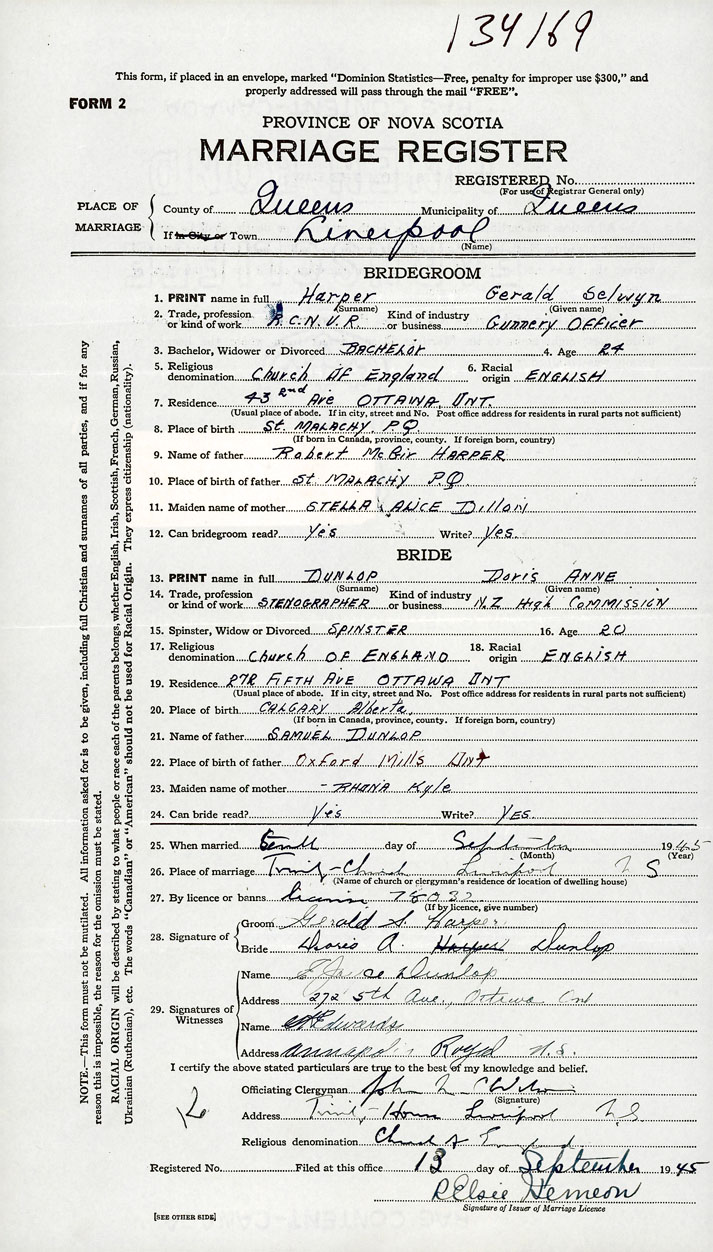 134169
This form, if placed in an envelope, marked "Dominion Statistics—Free, penalty for improper use $300," and
properly addressed will pass through the mail "FREE".
FORM 2
PROVINCE OF NOVA SCOTIA
MARRIAGE REGISTER
REGISTERED No.
(For use of Registrar General only)
PLACE OF MARRIAGE
County of Queens Municipality of Queens
If in City or Town Liverpool
(Name)
BRIDEGROOM
1. PRINT name in full Harper Gerald Selwyn
(Surname) (Given name)
2. Trade, profession or kind of work R.C.N.V.R. Kind of industry or business Gunnery Officer
3. Bachelor, Widower or Divorced BACHElor 4. Age 24
5. Religious denomination Church OF England 6. Racial origin ENGLISH
7. Residence 43 2nd Ave OTTAWA, ONT.
(Usual place of abode. If in city, street and No. Post office address for residents in rural parts not sufficient)
8. Place of birth St. MALACHY P.Q.
(If born in Canada, province, county. If foreign born, country)
9. Name of father Robert HARPER
10. Place of birth of father St MALACHY P.Q.
11. Maiden name of mother STELLA ALICE Dillon
12. Can bridegroom read? Yes Write? Yes.
BRIDE
13. PRINT name in full DUNLOP Doris ANNE
(Surname) (Given name)
14. Trade, profession or kind of work STENOGRAPHER Kind of industry or business N.Z High COMMISSION
15. Spinster, Widow or Divorced SPINSTER 16. Age 20
17. Religious denomination Church OF ENGLAND 18. Racial origin ENGLISH
19. Residence 272 FIFTH AVE OTTAWA ONT
(Usual place of abode. If in city, street and No. Post office address for residents in rural parts not sufficient)
20. Place of birth CALGARY Alberta.
(If born in Canada, province, county. If foreign born, country)
21. Name of father SAMUEL DUNLOP
22. Place of birth of father Oxford Mills Ont
23. Maiden name of mother - RHONA Kyle
24. Can bride read? Yes Write? YES.
25. When married tenth day of September 1945
(Month) (Year)
26. Place of marriage Trinity Church Liverpool N S
(Name of church or clergyman's residence or location of dwelling house)
27. By licence or banns licence
(If by licence, give number)
28. Signature of
Groom Gerald S. Harper.
Bride Doris A. Harper Dunlop
29. Signatures of Witnesses
Name E Joyce Dunlop
Address 272 5th Ave., Ottawa Ont
Name Edwards
Address Annapolis Royal N.S.
I certify the above stated particulars are true to the best of my knowledge and belief.
Officiating Clergyman John
(Signature)
Address Trinity House Liverpool N.S
Religious denomination Church of England
Registered No. Filed at this office 13 day of September 1945
Elsie Hemeon
Signature of Issuer of Marriage Licence
[SEE OTHER SIDE]
NOTE.—This form must not be mutilated. All information asked for is to be given, including full Christian and surnames of all parties, and if for any
reason this is impossible, the reason for the omission must be stated.
RACIAL ORIGIN will be described by stating to what people or race each of the parents belongs, whether English, Irish, Scottish, French, German, Russian,
Ukrainian (Ruthenian), etc. The words "Canadian" or "American" should not be used for Racial Origin. They express citizenship (nationality).